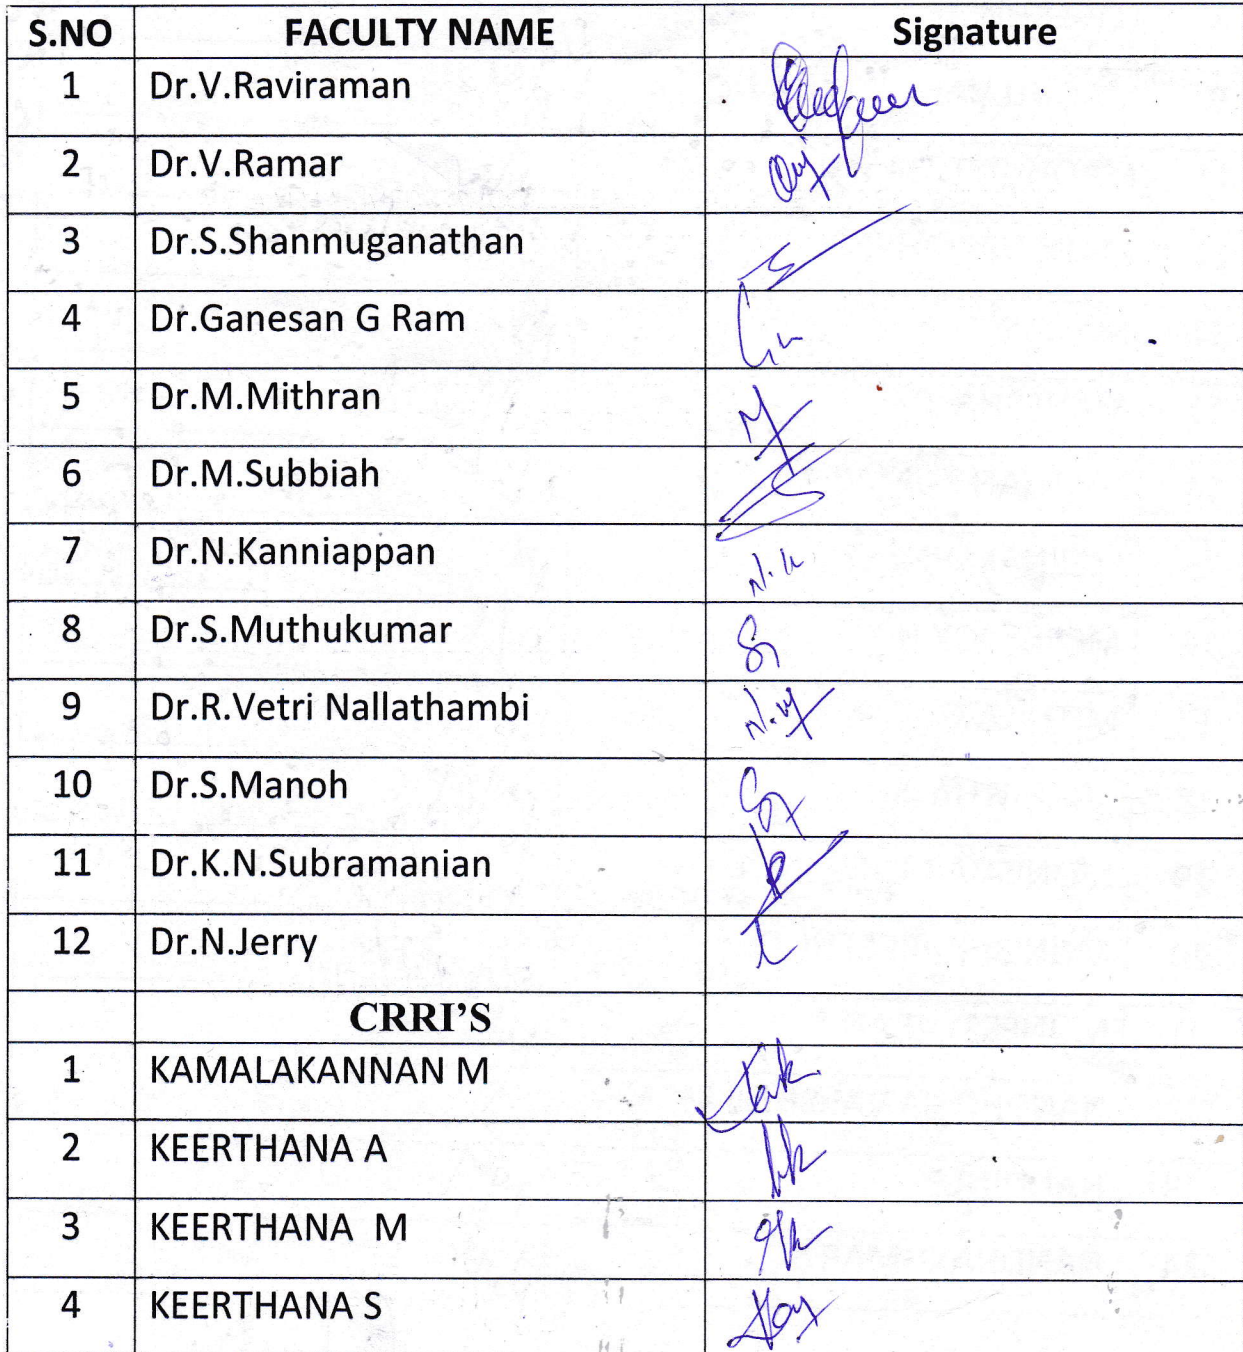 S.NO FACULTY NAME Signature
1 Dr.V.Raviraman
2 Dr.V.Ramar
3 Dr.S.Shanmuganathan
4 Dr.Ganesan G Ram
5 Dr.M.Mithran
6 Dr.M.Subbiah
7 Dr.N.Kanniappan N.K
8 Dr.S.Muthukumar
9 Dr.R.Vetri Nallathambi
10 Dr.S.Manoh
11 Dr.K.N.Subramanian
12 Dr.N.Jerry
CRRI'S
1 KAMALAKANNAN M
2 KEERTHANA A
3 KEERTHANA M
4 KEERTHANA S